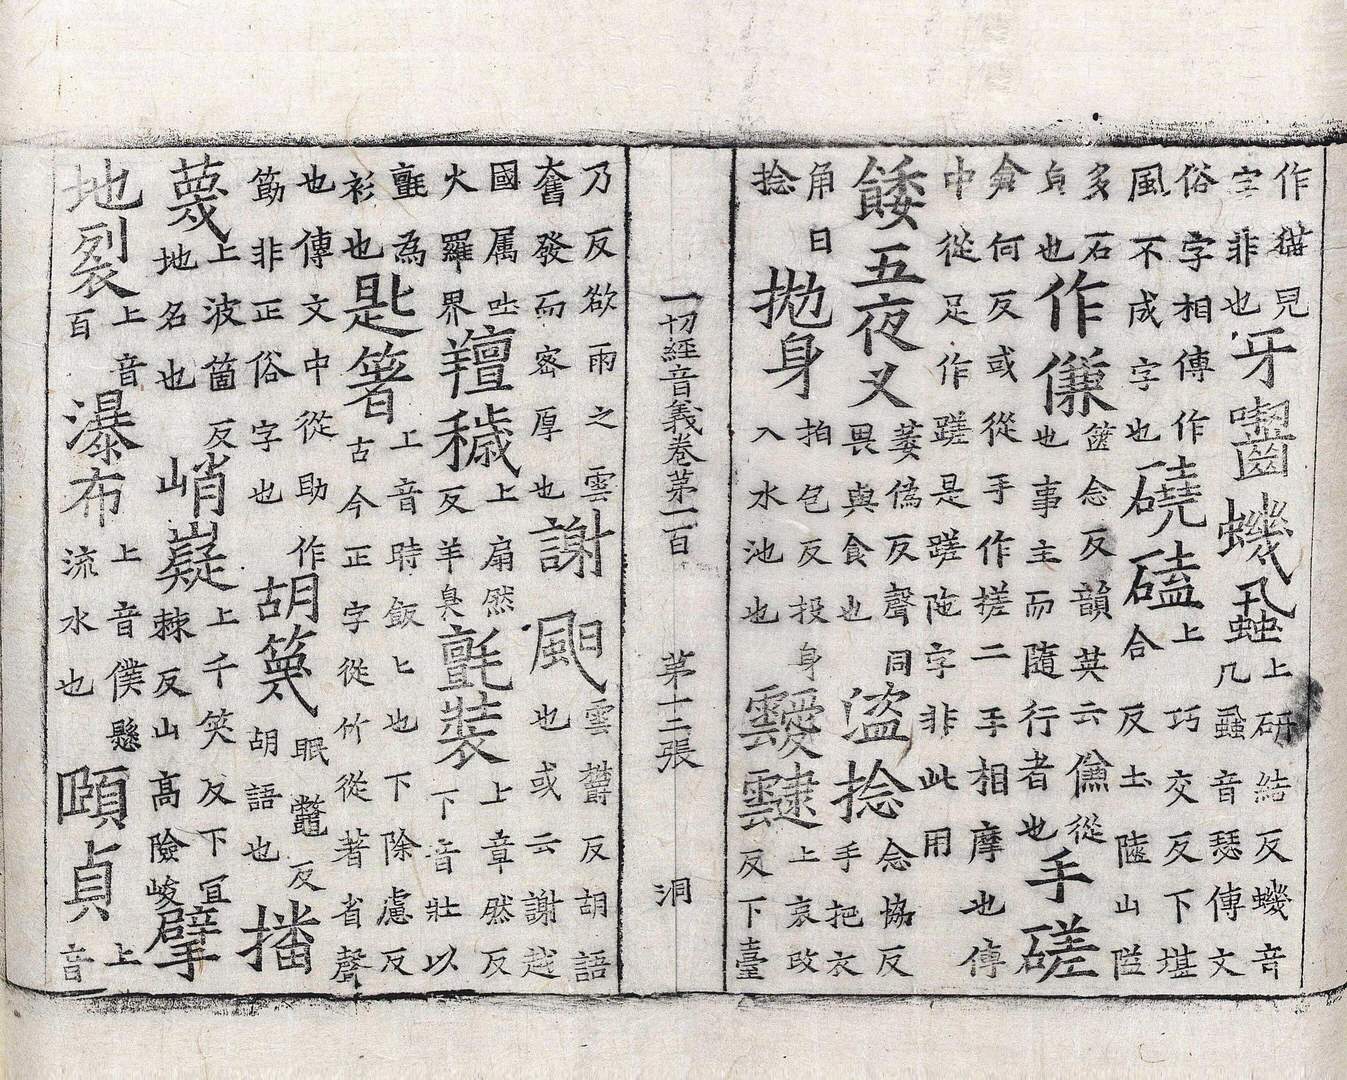 作猫皃字非也牙齧蟣蝨上研結反蟣音几蝨音瑟傳文
俗字相傳作風不成字也磽磕上巧交反下堪合反土隘山隘
多石貞也作傔篋念反韻英云傔從也事主而隨行者也手磋
倉何反或從手作搓二手相摩也傳中從足作蹉是蹉陁字非此用
餧五夜叉萎偽反聲同畏與食也盜捻念協反手把衣
角曰捻拋身拍包反投身入水池也靉靆上哀改反下臺
一切經音義卷第一百　第十二張　洞
乃反欲雨之雲奮發而密厚也謝䫻雲欝反胡語也或云謝越
國属吐火羅界羶穢上扇然反羊臭氈裝上章然反下音壯以
氈為衫也匙箸上音時飯匕也下除慮反古今正字從竹從著省聲
也傳文中從助作筯非正俗字也胡簚眠鼈反胡語也播
蔑上波箇反地名也峭嶷上千笑反下宜棘反山高險峻擘
地裂上音百瀑布上音僕懸流水也頤貞上音